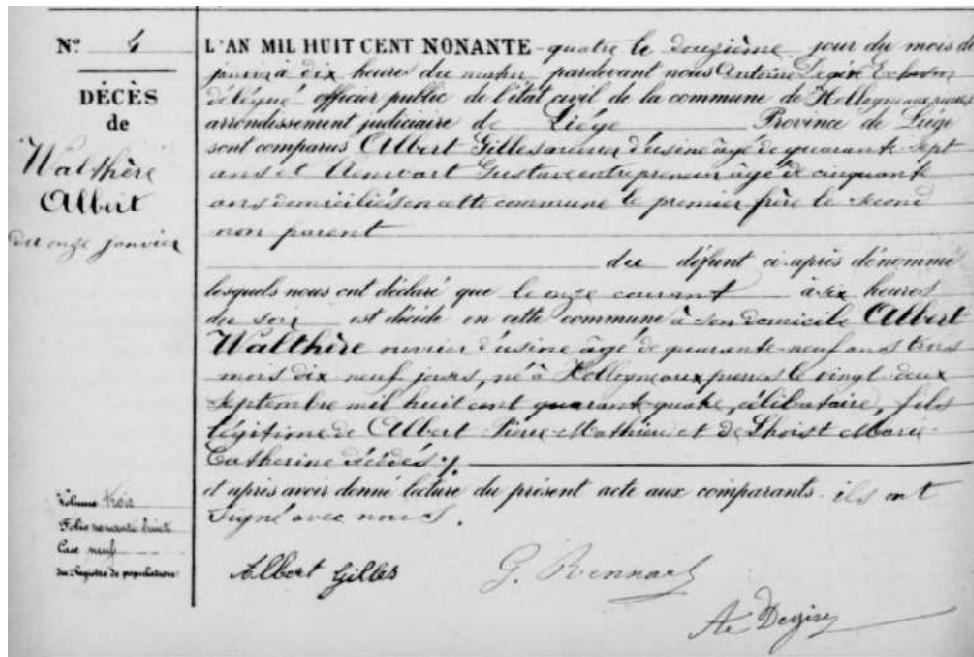 N° 4
DÉCÈS
de
Walthère
Albert
du onze janvier
L'AN MIL HUIT CENT NONANTE-quatre le douzième jour du mois de
janvier à dix heures du matin pardevant nous Antoine Degive Echevin
délégué officier public de l'état civil de la commune de Hollogne aux pierres
arrondissement judiciaire de Liége Province de Liége
sont comparus Albert Gilles ouvrier d'usine âgé de quarante-sept
ans et Gustave entrepreneur âgé de cinquante
ans domiciliés en cette commune le premier frère le second
non parent
du défunt ci-après dénommé
lesquels nous ont déclaré que le onze courant à six heures
du soir est décédé en cette commune à son domicile Albert
Walthère ouvrier d'usine âgé de quarante-neuf ans trois
mois dix neuf jours, né à Hollogne aux pierres le vingt deux
septembre mil huit cent quarante quatre, célibataire, fils
légitime de Albert Pierre-Mathieu et de Lhoist Marie-
Catherine décédés.
et après avoir donné lecture du présent acte aux comparants ils ont
signé avec nous.
Volume trois
Folio
Case neuf
du Registre de population
Albert Gilles
G. Rennart
Ae Degive